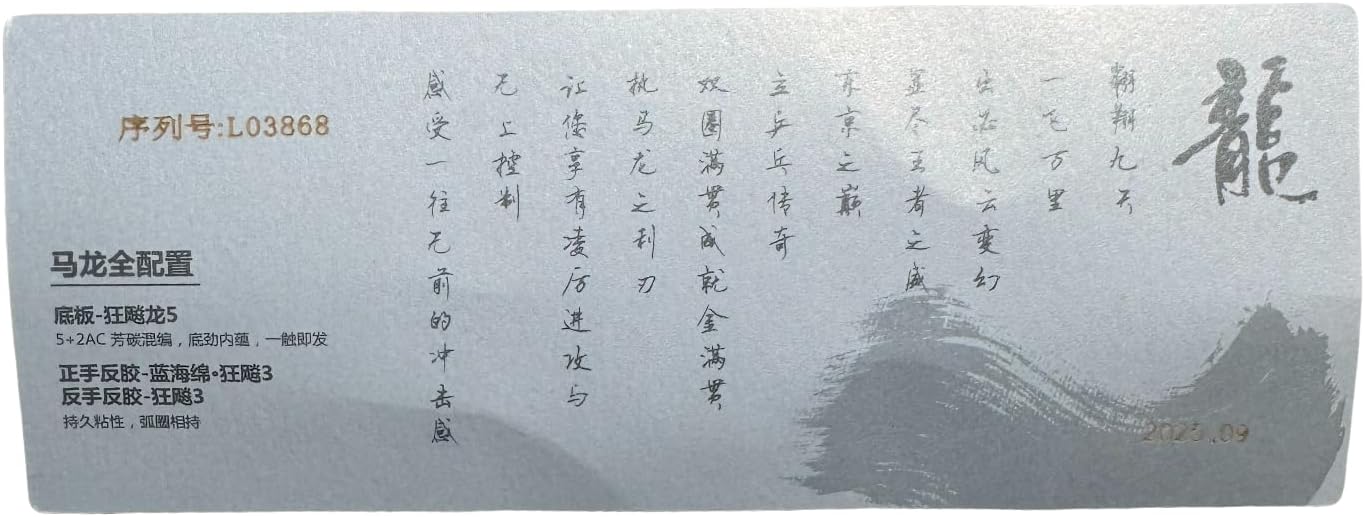 龍
翱翔九天
一飞万里
出必风云变幻
显尽王者之威
东京之巅
立乒乓传奇
双圈满贯成就金满贯
执马龙之利刃
让您享有凌厉进攻与
无上控制
感受一往无前的冲击感
序列号:L03868
马龙全配置
底板-狂飚龙5
5+2AC 芳碳混编，底劲内蕴，一触即发
正手反胶-蓝海绵•狂飚3
反手反胶-狂飚3
持久粘性，弧圈相持
2023.09